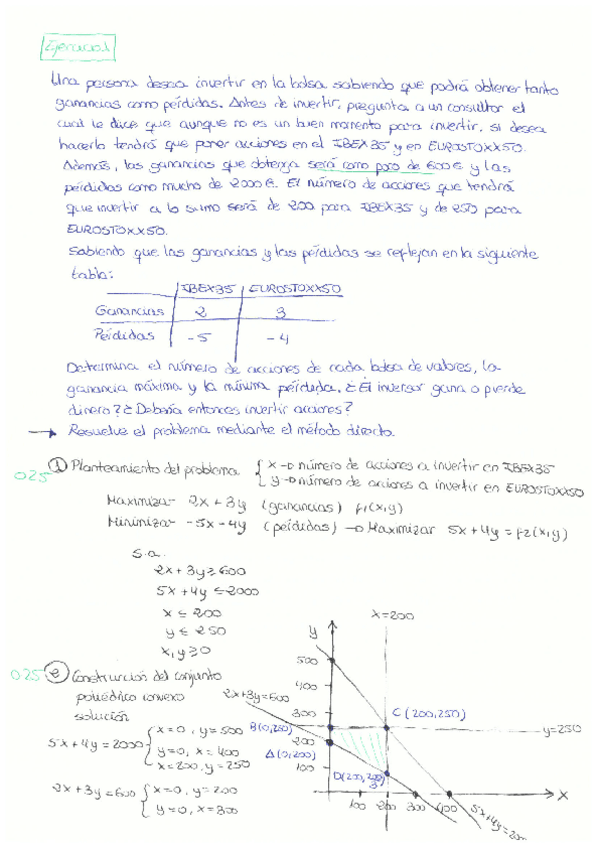 Ejercicio 1
Una persona desea invertir en la bolsa sabiendo que podrá obtener tanto
ganancias como pérdidas. Antes de invertir, pregunta a un consultor el
cual le dice que aunque no es un buen momento para invertir, si desea
hacerlo tendrá que poner acciones en el IBEX35 y en EUROSTOXX50.
Además, las ganancias que obtenga será como poco de 600€ y las
pérdidas como mucho de 2000€. El número de acciones que tendrá
que invertir a lo sumo será de 200 para IBEX35 y de 250 para
EUROSTOXX50.
Sabiendo que las ganancias y las pérdidas se reflejan en la siguiente
tabla:
IBEX35 EUROSTOXX50
Ganancias 2 3
Pérdidas -5 -4
Determina el número de acciones de cada bolsa de valores, la
ganancia máxima y la mínima pérdida. ¿El inversor gana o pierde
dinero? ¿Debería entonces invertir acciones?
→ Resuelve el problema mediante el método directo.
0.25 ① Planteamiento del problema { x → número de acciones a invertir en IBEX35
y → número de acciones a invertir en EUROSTOXX50
Maximizar 2x + 3y (ganancias) f1(x,y)
Minimizar -5x-4y (pérdidas) → Maximizar 5x + 4y = f2(x,y)
s.a.
2x + 3y ≥ 600
5x + 4y ≤ 2000
x ≤ 200
y ≤ 250
x,y ≥ 0
0.25 ② Construcción del conjunto
poliédrico convexo
solución
5x + 4y = 2000 { x=0, y=500
y=0, x=400
x=200, y=250
2x + 3y = 600 { x=0, y=200
y=0, x=300
x=200
y
500
400
2x+3y=600
300
C (200,250)
B(0,250)
y=250
200
A(0,200)
100
D(200, 200/3)
100 200 300 400 x
5x+4y=2000